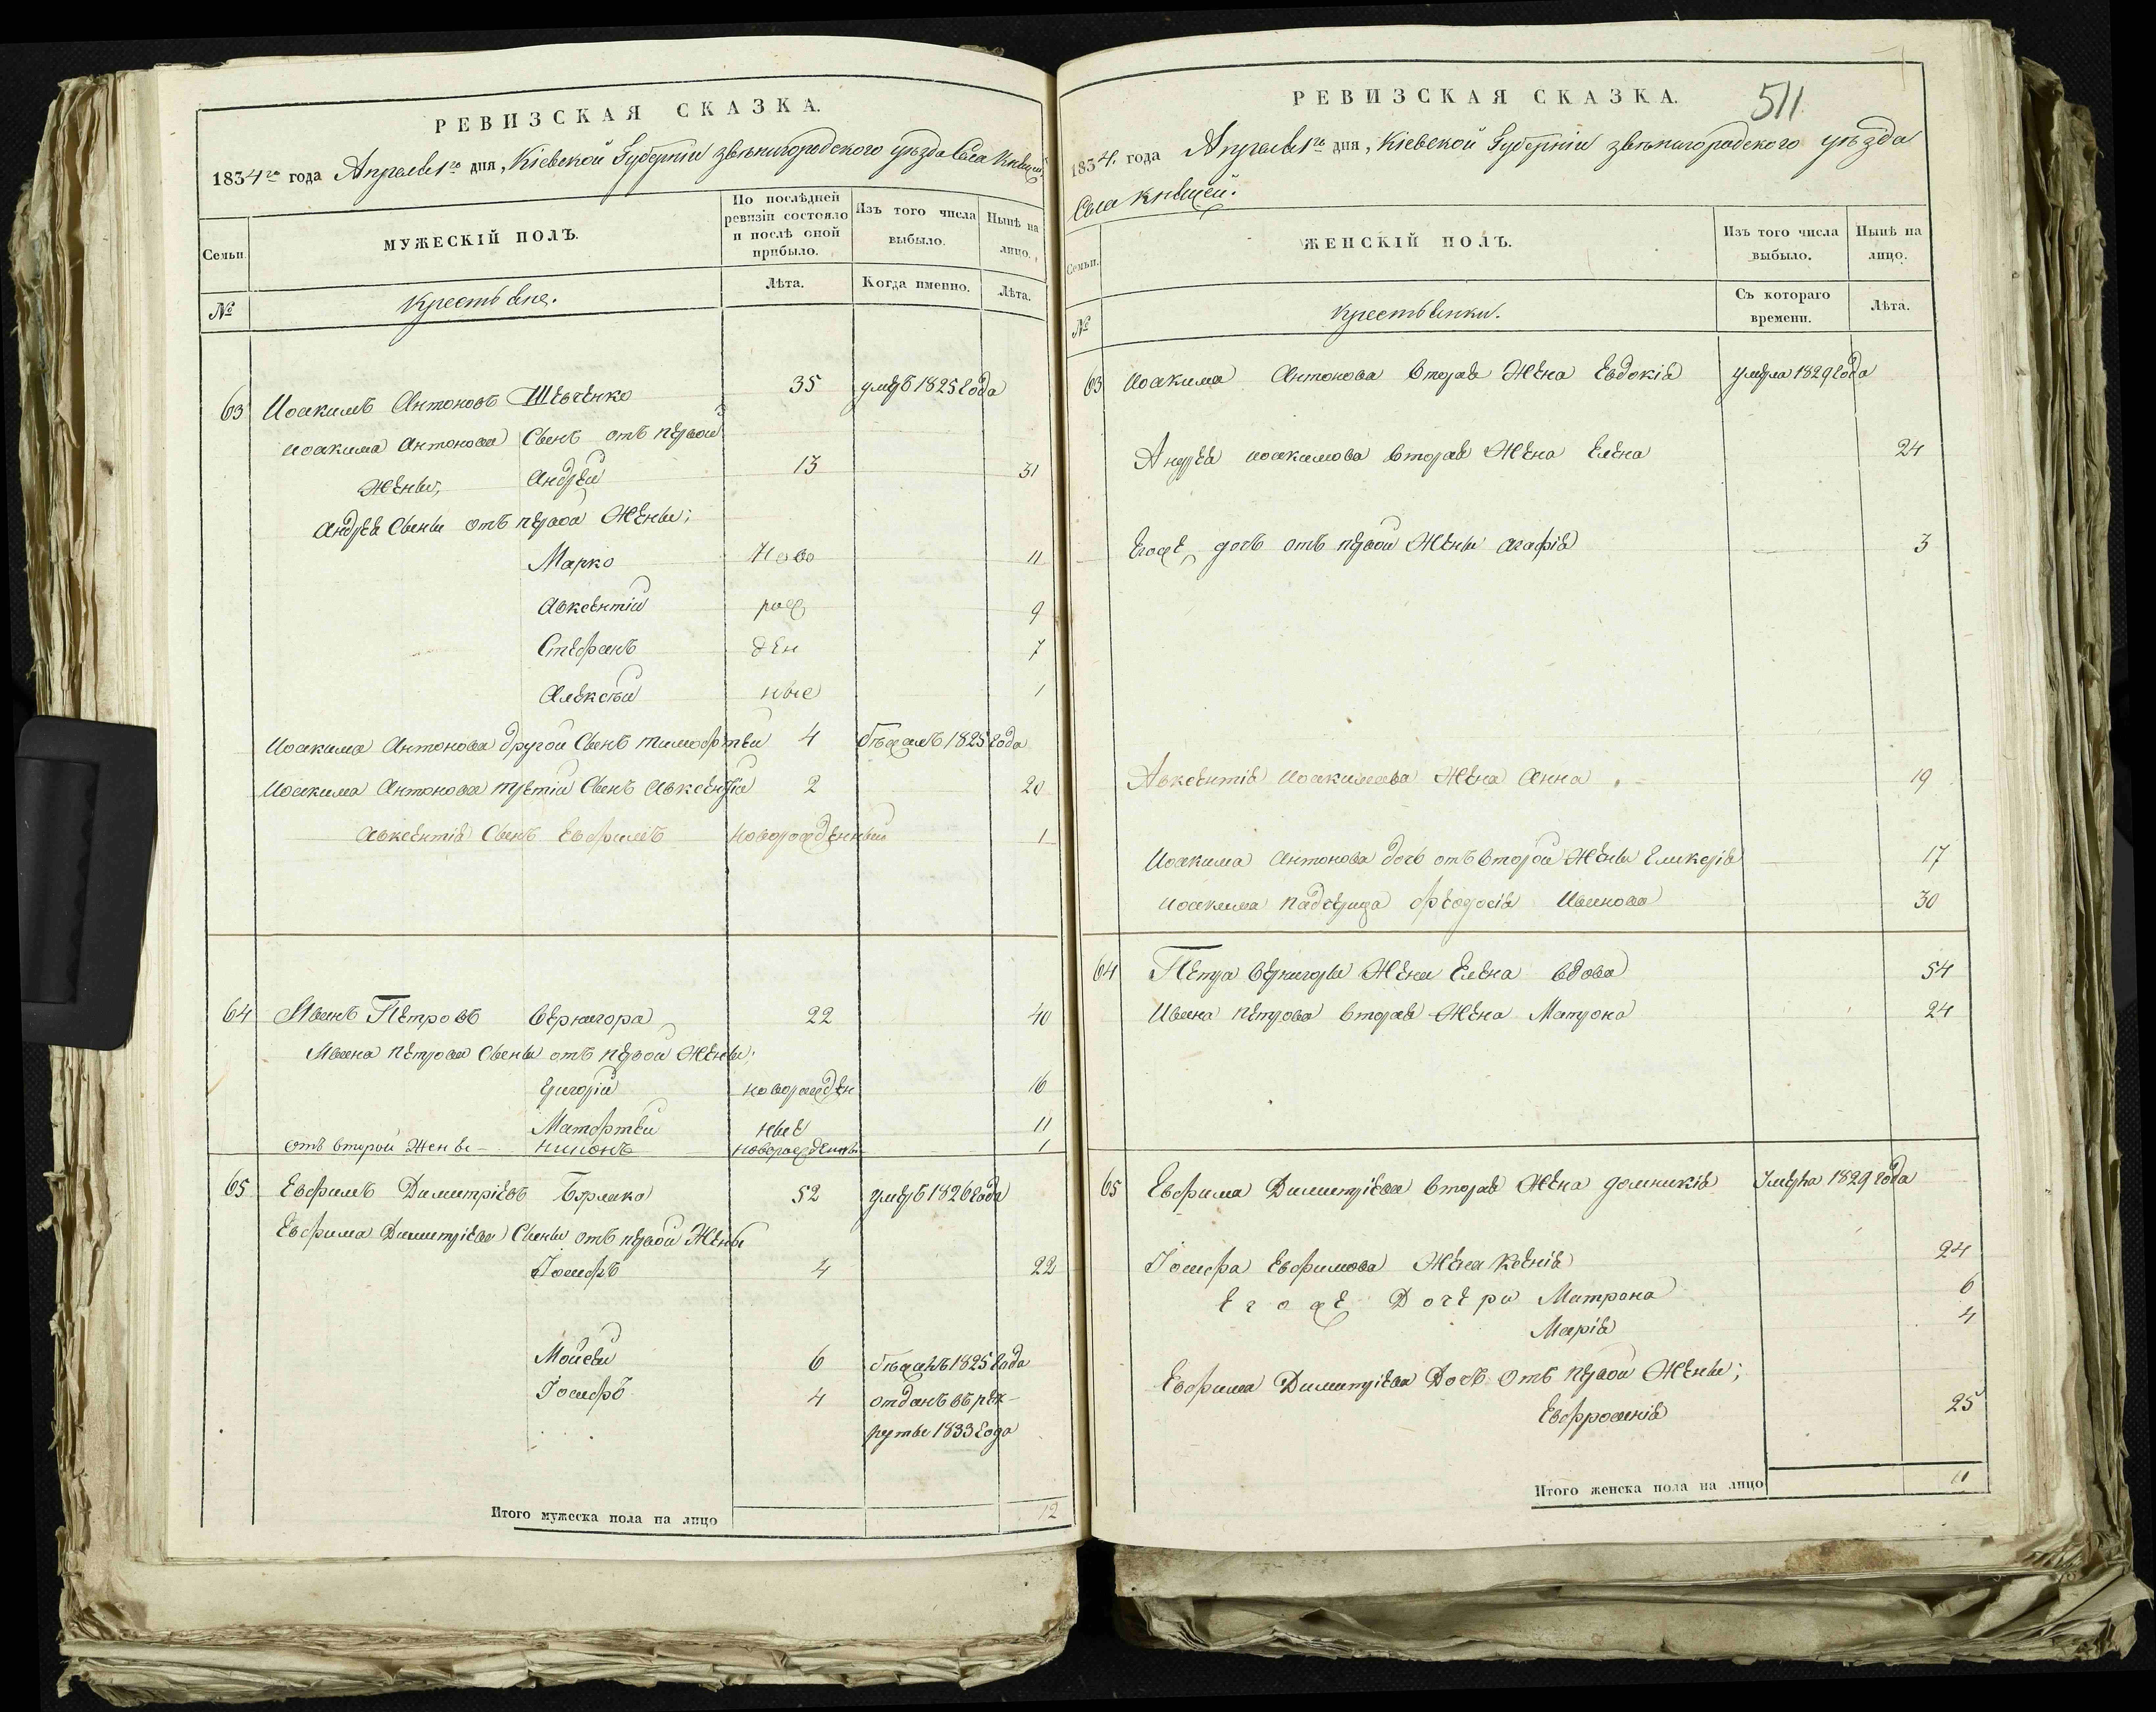 РЕВИЗСКАЯ СКАЗКА.
1834го года Апреля 1го дня, Кіевской Губерніи звѣнигородского уѣзда Села
Семьи.
МУЖЕСКІЙ ПОЛЪ.
По послѣдней ревизіи состояло и послѣ оной прибыло.
Изъ того числа выбыло.
Нынѣ на лицо.
№
Крестьяне.
Лѣта.
Когда именно.
Лѣта.
63 Иоакимъ Антоновъ Шевченко 35 умеръ 1825 года
Иоакима Антонова Сынъ отъ первой
жены, Андрей 13 31
Андрея Сыны отъ первой жены;
Марко Ново 11
Авксентій рож 9
Стефанъ ден 7
Алексѣй ные 1
Иоакима Антонова другой Сынъ тимофтей 4 бѣжалъ 1825 года
Иоакима Антонова третій Сынъ Авксентій 2 20
Авксентія Сынъ Евфимъ новорожденный 1
64 Иванъ Петровъ Вернигора 22 40
Ивана петрова Сыны отъ первой жены;
Григорій новорожден 16
Матфтей ные 11
отъ второй жены - никонъ новорожденны 1
65 Евфимъ Димитріевъ Бурлака 52 умеръ 1826 года
Евфима Димитріева Сыны отъ первой жены
Іосифъ 4 22
Мойсей 6 бѣжалъ 1825 года
Іосифъ 4 отданъ въ рек-
руты 1833 года
Итого мужеска пола на лицо 12
РЕВИЗСКАЯ СКАЗКА.
511
1834. года Апреля 1го дня, Кіевской Губерніи звѣнигородского уѣзда
Села
Семьи.
ЖЕНСКІЙ ПОЛЪ.
Изъ того числа выбыло.
Нынѣ на лицо.
№
Крестьянки.
Съ котораго времени.
Лѣта.
63 Иоакима Антонова вторая жена Евдокія умерла 1829 года
Андрея иоакимова вторая жена Елена 24
Егоже дочь отъ первой жены агафія 3
Авксентія Иоакимова жена Анна 19
Иоакима Антонова дочь отъ второй жены Гликерія 17
иоакима падчерица феодосія Иванова 30
64 Петра вернигоры жена Елена вдова 54
Ивана петрова вторая жена Матрона 24
65 Евфима Димитріева вторая жена домникія Умерла 1829 года
Іосифа Евфимова жена Ксенія 24
Егоже Дочери Матрона 6
Марія 4
Евфима Димитріева Дочь отъ первой жены;
Евфросинія 25
Итого женска пола на лицо 11